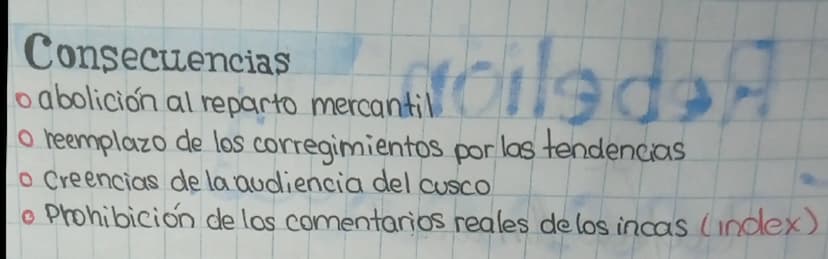 Consecuencias
o abolición al reparto mercantil
o reemplazo de los corregimientos por las tendencias
o Creencias de la audiencia del cusco
o Prohibición de los comentarios reales de los incas (index)
Rebelion